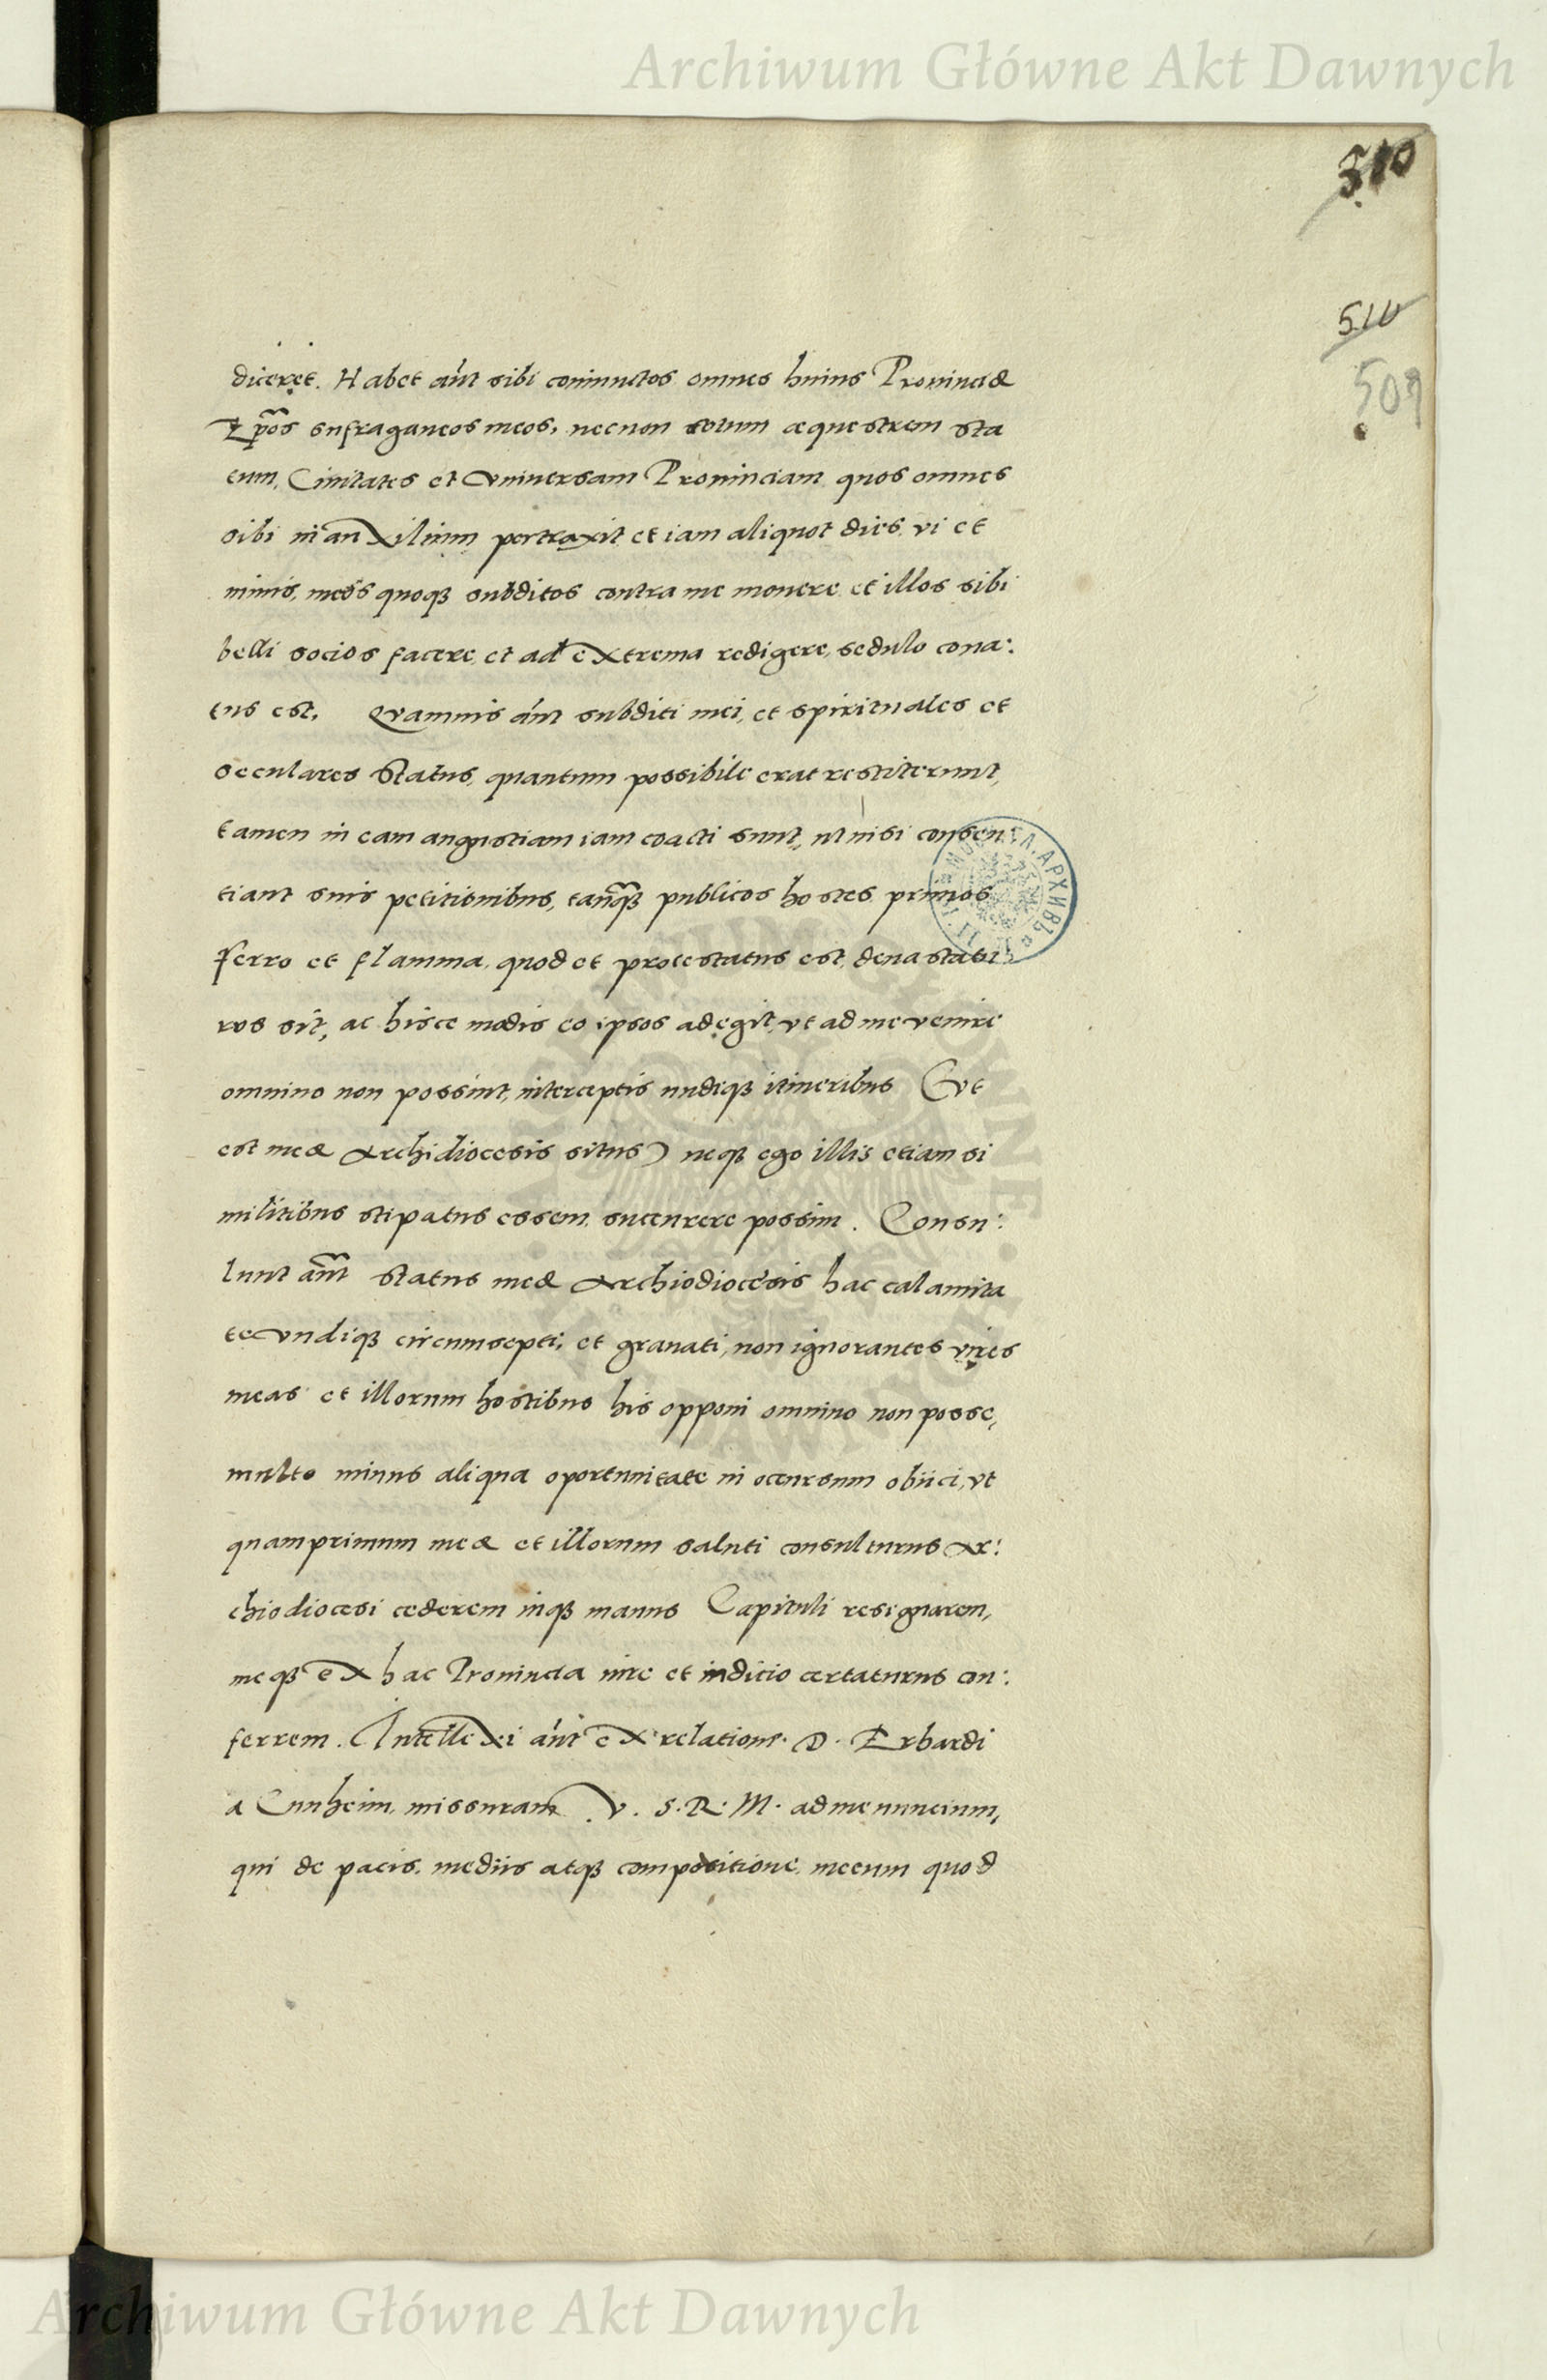 Archiwum Główne Akt Dawnych
510
510
509
diceret. Habet aut sibi coniunctos omnes huius Prouinciæ
Epos sufraganeos meos, necnon totum æquestrem sta
tum, Ciuitates et Vniuersam Prouinciam quos omnes
sibi in auxilium pertraxit et iam aliquot dies vi et
minis, meos quoqꝫ subditos contra me mouere et illos sibi
belli socios facere, et ad extrema redigere, sedulo cona:
tus est. Quamuis aut subditi mei, et spirituales et
seculares Status, quantum possibile erat restiterunt,
tamen in eam angustiam iam coacti sunt, ut nisi consen
tiant suis petitionibus, tanqꝫ publicos hostes primos
ferro et flamma, quod et protestatus est, deuastatu
rus sit, ac hisce modis eo ipsos adegit, vt ad me venire
omnino non possint, interceptis undiqꝫ itineribus (vt
est meæ Archidiocesis situs) neqꝫ ego illis etiam si
militibus stipatus essem, sucurrere possim. Consu:
lunt aut Status meæ Archiodiocesis hac calamita
te vndiqꝫ circumsepti, et grauati, non ignorantes vires
meas et illorum hostibus his opponi omnino non posse,
multo minus aliqua oportunitate in occursum obiici, vt
quamprimum meæ et illorum saluti consulturus Ar:
chiodiocesi cederem inqꝫ manus Capituli resignarem,
meqꝫ ex hac Prouincia iure et iudicio certaturus con:
ferrem. Intellexi aut ex relatione D. Erhardi
a Cunheim missuram V. S. R. M. ad me nuncium,
qui de pacis mediis atqꝫ compositione mecum quod
Archiwum Główne Akt Dawnych